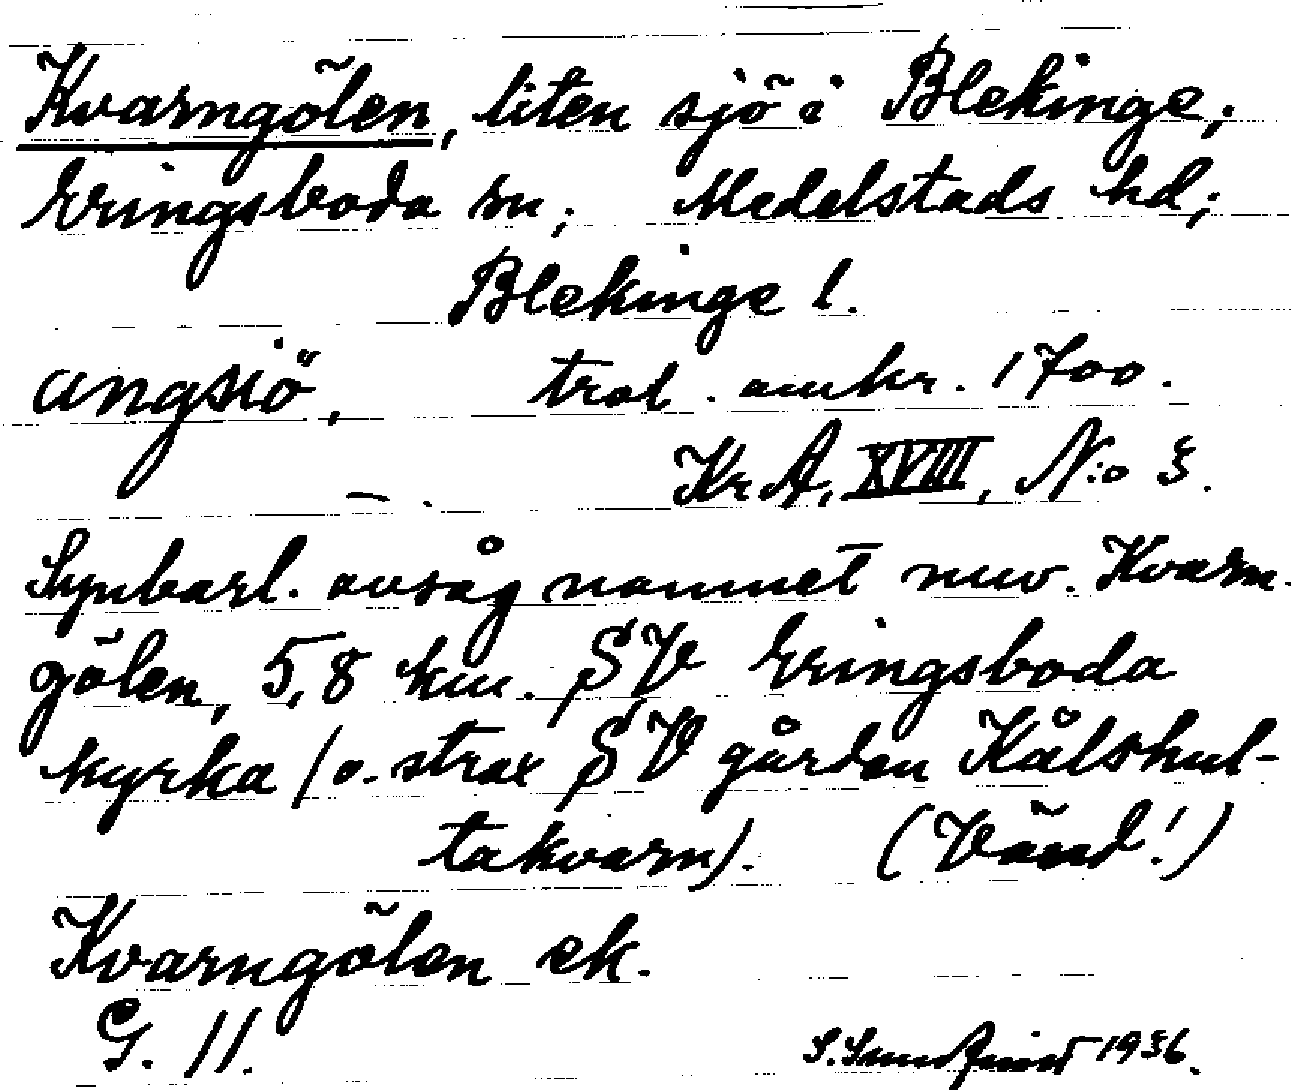 Kvarngölen, liten sjö i Blekinge;
Eringsboda sn; Medelstads hd;
Blekinge l.
angsiö, trol. omkr. 1700.
KrA, XVIII, N:o 3.
Synbarl. avsåg namnet nuv. Kvarn-
gölen, 5,8 km. SV Eringsboda
kyrka (o. strax SV gården Kålshul-
takvarn). (Vänd!)
Kvarngölen ek.
G. 11. 1936.